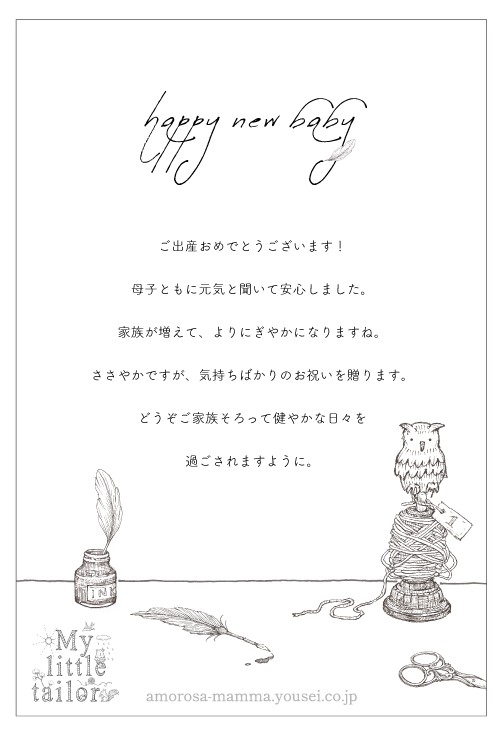 happy new baby
ご出産おめでとうございます！
母子ともに元気と聞いて安心しました。
家族が増えて、よりにぎやかになりますね。
ささやかですが、気持ちばかりのお祝いを贈ります。
どうぞご家族そろって健やかな日々を
過ごされますように。
1
INK
My
little
tailor
amorosa-mamma.yousei.co.jp